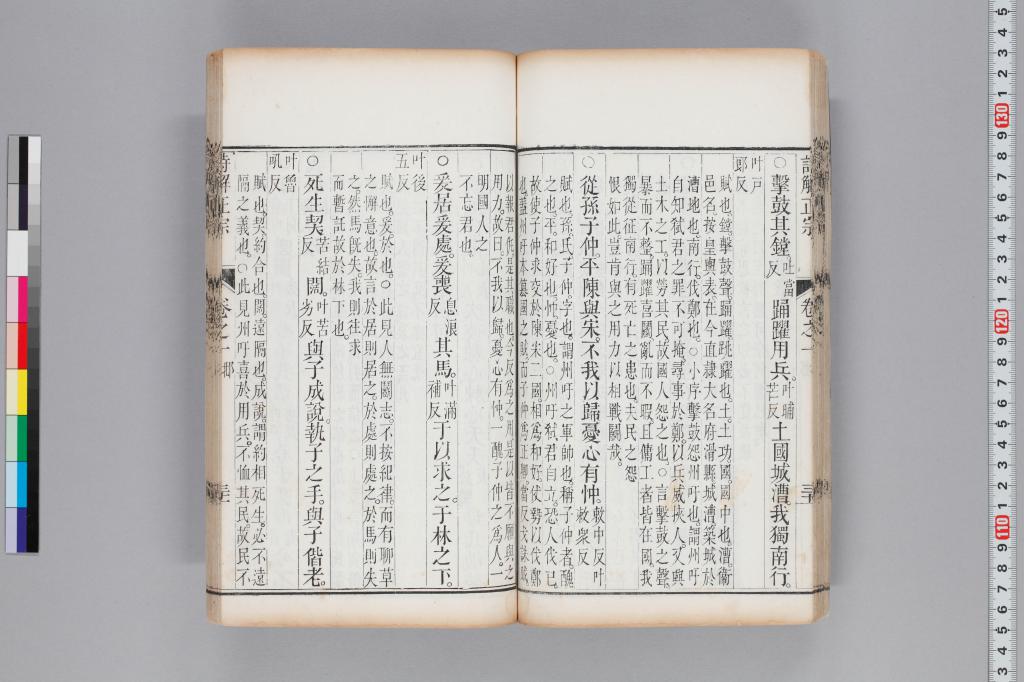 ○擊鼓其鏜吐當反踊躍用兵叶晡芒反土國城漕我獨南行叶戸郎反
賦也鏜擊鼓聲踊躍跳躍也土土功國國中也漕衞
邑名按皇輿表在今直隸大名府滑縣城漕築城於
漕地也南行伐鄭也○小序擊鼓怨州吁也謂州吁
自知弑君之罪不可掩尋事於鄭以兵威挾人又興
土木之工以勞其民故國人怨之也○言擊鼓之聲
暴而不整踊躍喜鬭亂而不暇且傭工者皆在國我
獨從征南行有死亡之患也夫民之怨
恨如此豈肯與之用力以相戰鬭哉
○從孫子仲平陳與宋不我以歸憂心有忡敕中反叶敕衆反
賦也孫氏子仲字也謂州吁之軍帥也稱子仲者醜
之也平和好也忡憂也○州吁弑君自立恐人伐已
故使子仲求交於陳宋二國相爲和好使勢以伐鄭
以報君
用力故曰不我以歸憂心有忡一醜子仲之爲人一
明國人之
不忘君也
○爰居爰處爰喪息浪反其馬叶滿補反于以求之于林之下叶後五反
賦也爰於也○此見人無鬭志不按紀律而有聊草
之懈意也故言於居則居之於處則處之於馬則失
之然馬旣失我則往求
而暫託故於林下也
○死生契苦結反闊叶苦劣反與子成說執子之手與子偕老叶魯吼反
賦也契約合也闊遠隔也成說謂約相死生必不遠
隔之義也○此見州吁喜於用兵不恤其民故民不
詩解正宗
卷之一
邶